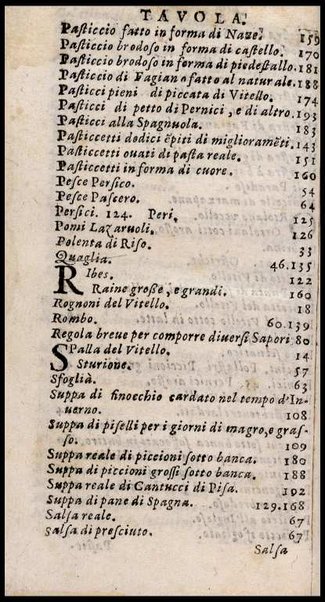 TAVOLA.
Pasticcio fatto in forma di Naue. 159
Pasticcio brodoso in forma di castello. 170
Pasticcio brodoso in forma di piedestallo. 181
Pasticcio di Fagiano fatto al naturale. 188
Pasticci pieni di piccata di Vitello. 174
Pasticci di petto di Pernici, e di altro. 193
Pasticci alla Spagnuola. 183
Pasticcetti dodici ẽpiti di miglioramẽti. 143
Pasticcetti ouati di pasta reale. 151
Pasticcetti in forma di cuore. 160
Pesce Persico. 54
Pesce Passero. 64
Persici. 124. Peri. 125
Pomi Lazaruoli. 126
Polenta di Riso. 33
Quaglia. 46.135
Ribes. 122
Raine grosse, e grandi. 160
Rognoni del Vitello. 18
Rombo. 60.139
Regola breue per comporre diuersi Sapori 80
Spalla del Vitello. 14
Sturione. 57
Sfoglia. 63
Suppa di finocchio cardato nel tempo d'In-
uerno. 108
Suppa di piselli per i giorni di magro, e gras-
so. 109
Suppa reale di piccioni sotto banca. 180
Suppa di piccioni grossi sotto banca. 188
Suppa reale di Cantucci di Pisa. 192
Suppa di pane di Spagna. 129.168
Salsa reale. 67
Salsa di presciuto. 67
Salsa